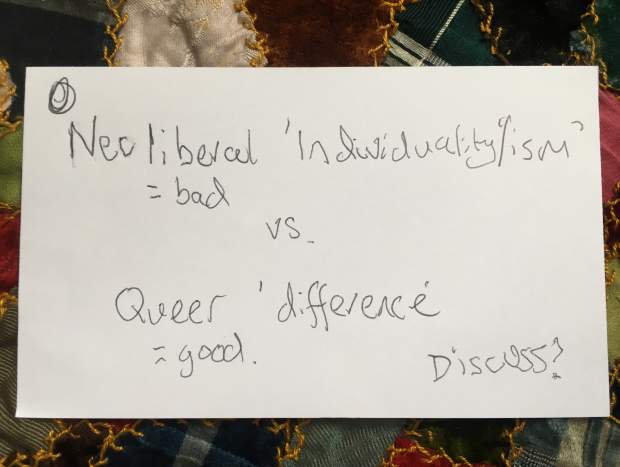 Neoliberal 'Individuality/ism'
= bad
vs.
Queer 'difference'
= good.
Discuss?